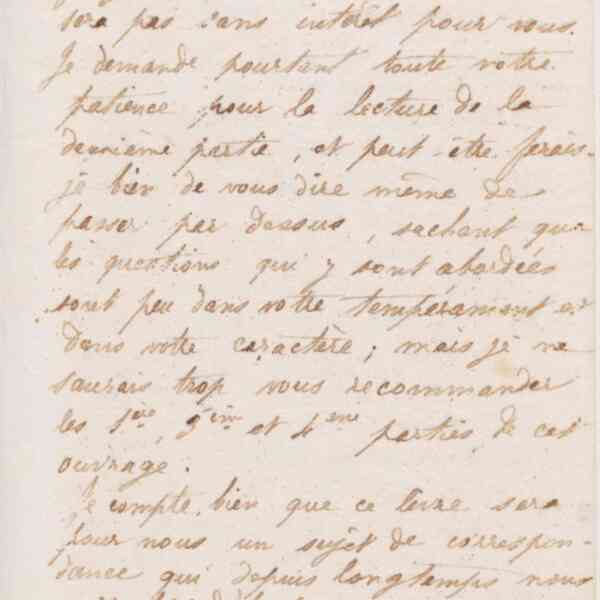 sera pas sans intérêt pour vous.
Je demande pourtant toute votre
patience pour la lecture de la
deuxième partie, et peut-être ferais-
je bien de vous dire même de
passer par dessus, sachant que
les questions qui y sont abordées
sont peu dans votre tempérament et
dans votre caractère ; mais je ne
saurais trop vous recommander
les 1ère, 3ème et 4ème parties de cet
ouvrage.
Je compte bien que ce livre sera
pour nous un sujet de correspon-
dance qui depuis longtemps nous